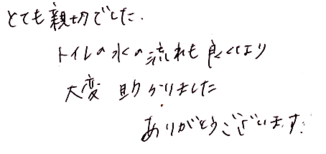 とても親切でした.
トイレの水の流れも良くなり
大変助かりました
ありがとうございます.